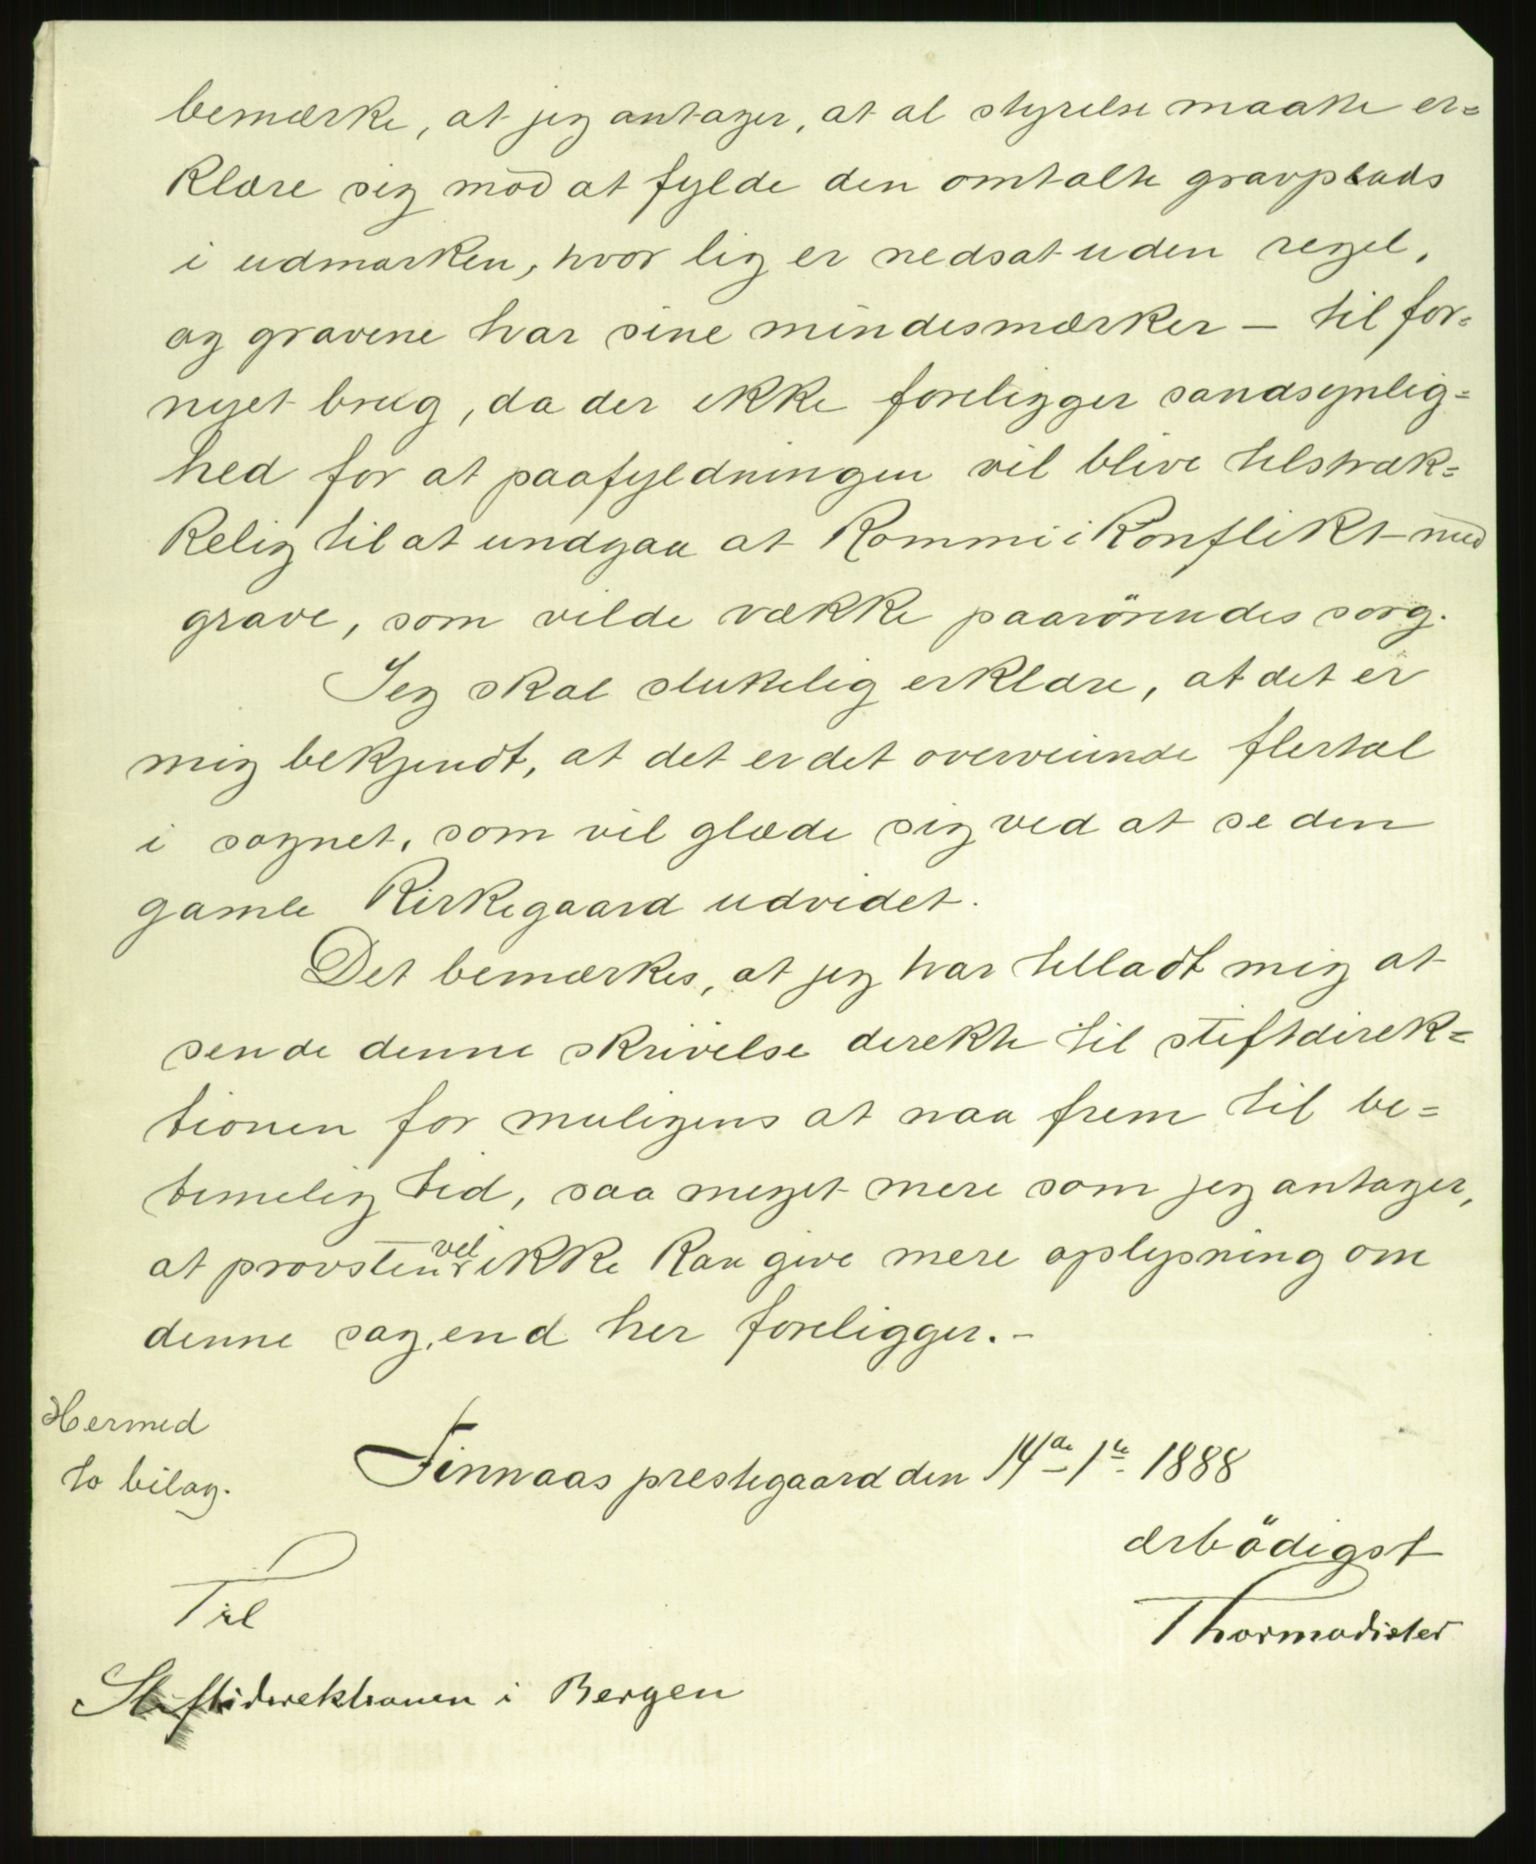 bemærke, at jeg antager, at al styrelse maatte er=
klære sig mod at fylde den omtalte gravplads
i udmarken, hvor lig er nedsat uden regel,
og gravene har sine mindesmærker – til for=
nyet brug, da der ikke foreligger sandsynlig=
hed for at paafyldningen vil blive tilstræk=
kelig til at undgaa at komme i konflikt med
grave, som vilde vække paarörendes sorg.
Jeg skal sluttelig erklære, at det er
mig bekjendt, at det er det overveiende flertal
i sognet, som vil glæde sig ved at se den
gamle kirkegaard udvidet.
Det bemærkes, at jeg har tilladt mig at
sende denne skrivelse direkte til stiftdirek=
tionen for muligens at naa frem til be=
timelig tid, saa meget mere som jeg antager,
at provsten vel ikke kan give mere oplysning om
denne sag, end her foreligger. –
Hermed
to bilag.
Finnaas prestegaard den 14de 1te 1888
ærbödigst
Thormodsæter
Til
Stiftsdirektionen i Bergen